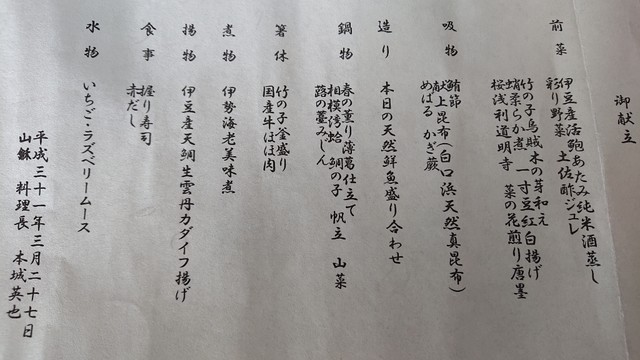 御献立
前菜
伊豆産活鮑あたみ純米酒蒸し
彩り野菜 土佐酢ジュレ
竹の子烏賊木の芽和え
蛸柔らか煮 一寸豆紅白揚げ
桜浅利道明寺 菜の花煎り唐墨
吸物
鮪節
献上昆布(白口浜天然真昆布)
めばる かぎ蕨
造り
本日の天然鮮魚盛り合わせ
鍋物
春の薫り薄葛仕立て
相模湾蛤 鯛の子 帆立 山菜
蕗の薹みじん
箸休
竹の子釜盛り
国産牛ほほ肉
煮物
伊勢海老美味煮
揚物
伊豆産天鯛生雲丹カダイフ揚げ
食事
握り寿司
赤だし
水物
いちご・ラズベリームース
平成三十一年三月二十七日
料理長 本城英也